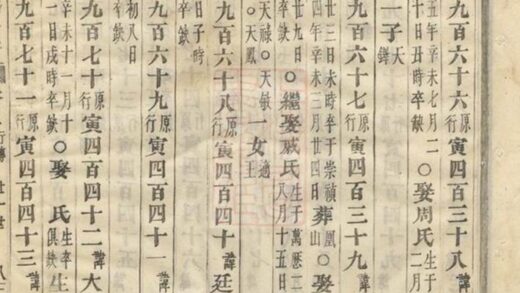 九百六十六原行寅四百三十八諱
五年辛未七月二十日丑時卒缺○娶周氏生于二月
一子天鐸
九百六十七原行寅四百三十九諱
廿三日未時卒于崇禎四年辛未二月廿四日葬凰山○娶
廿九日卒缺○繼娶戚氏生于萬歷三八月十五日
天祿○天敏○天鳳一女適王
九百六十八原行寅四百四十諱廷
日子時
九百六十九原行寅四百四十一諱
初八日卒缺
九百七十原行寅四百四十二諱大
辛未十一月十一日戌時卒缺○娶 氏生卒俱缺生
九百七十一原行寅四百四十三諱
行傳